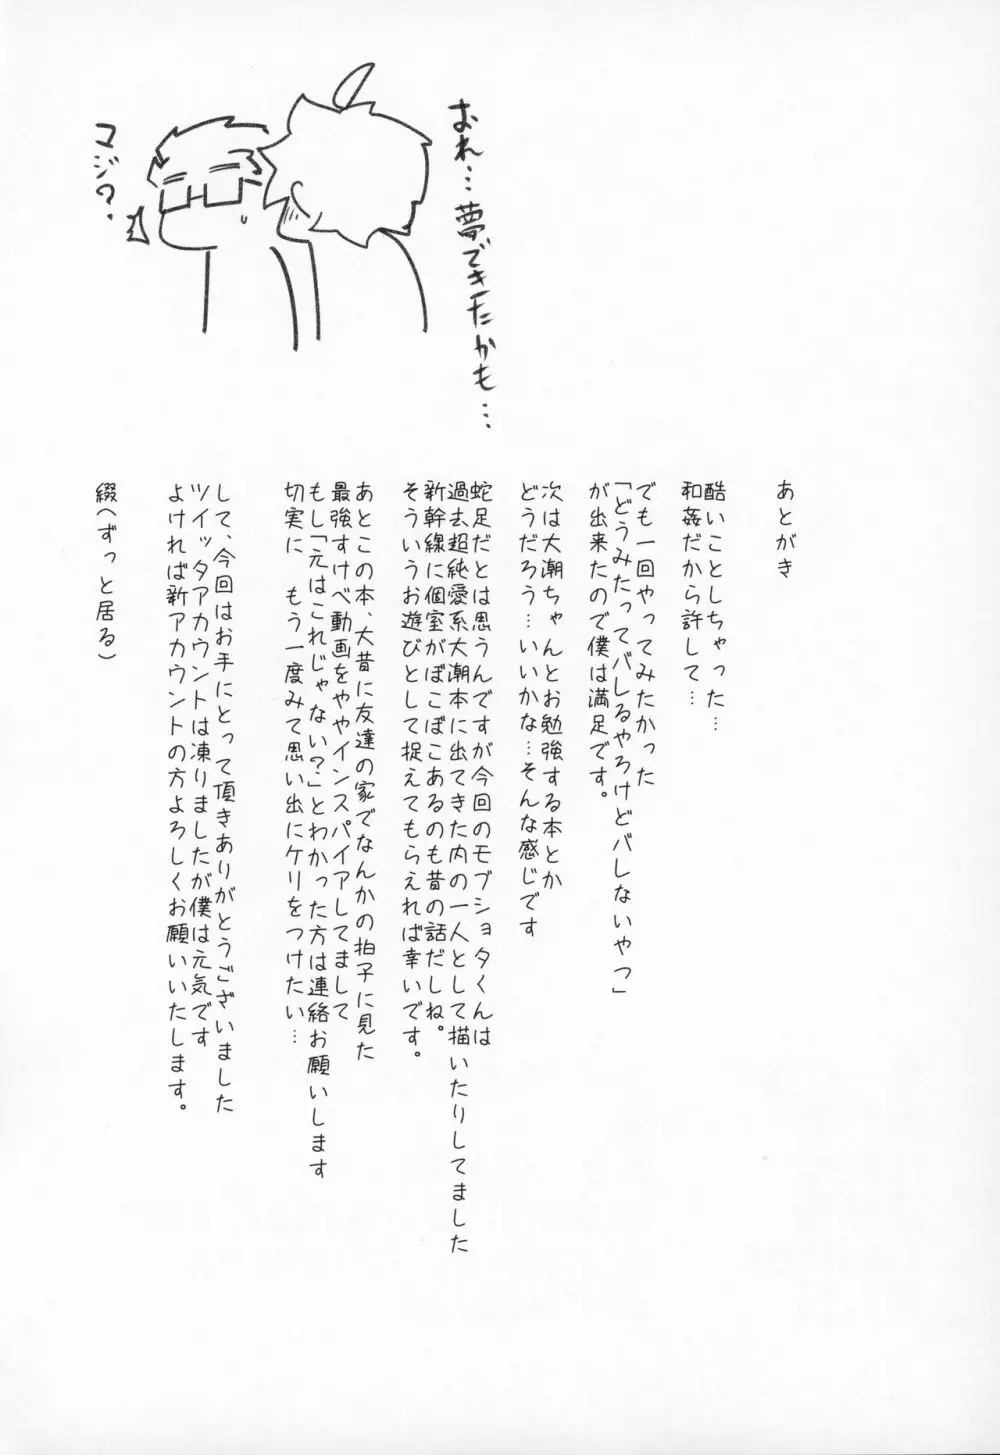 おれ…夢できたかも…
マジ?
あとがき
酷いことしちゃった…
和姦だから許して…
でも一回やってみたかった
「どうみたってバレるやろけどバレないやつ」
が出来たので僕は満足です。
次は大潮ちゃんとお勉強する本とか
どうだろう…いいかな…そんな感じです
蛇足だとは思うんですが今回のモブショタくんは
過去超純愛系大潮本に出てきた内の一人として描いたりしてました
新幹線に個室がぽこぽこあるのも昔の話だしね。
そういうお遊びとして捉えてもらえれば幸いです。
あとこの本、大昔に友達の家でなんかの拍子に見た
最強すけべ動画をややインスパイアしてまして
もし「元はこれじゃない?」とわかった方は連絡お願いします
切実に もう一度みて思い出にケリをつけたい…
して、今回はお手にとって頂きありがとうございました
ツイッタアカウントは凍りましたが僕は元気です
よければ新アカウントの方よろしくお願いいたします。
綴(ずっと居る)